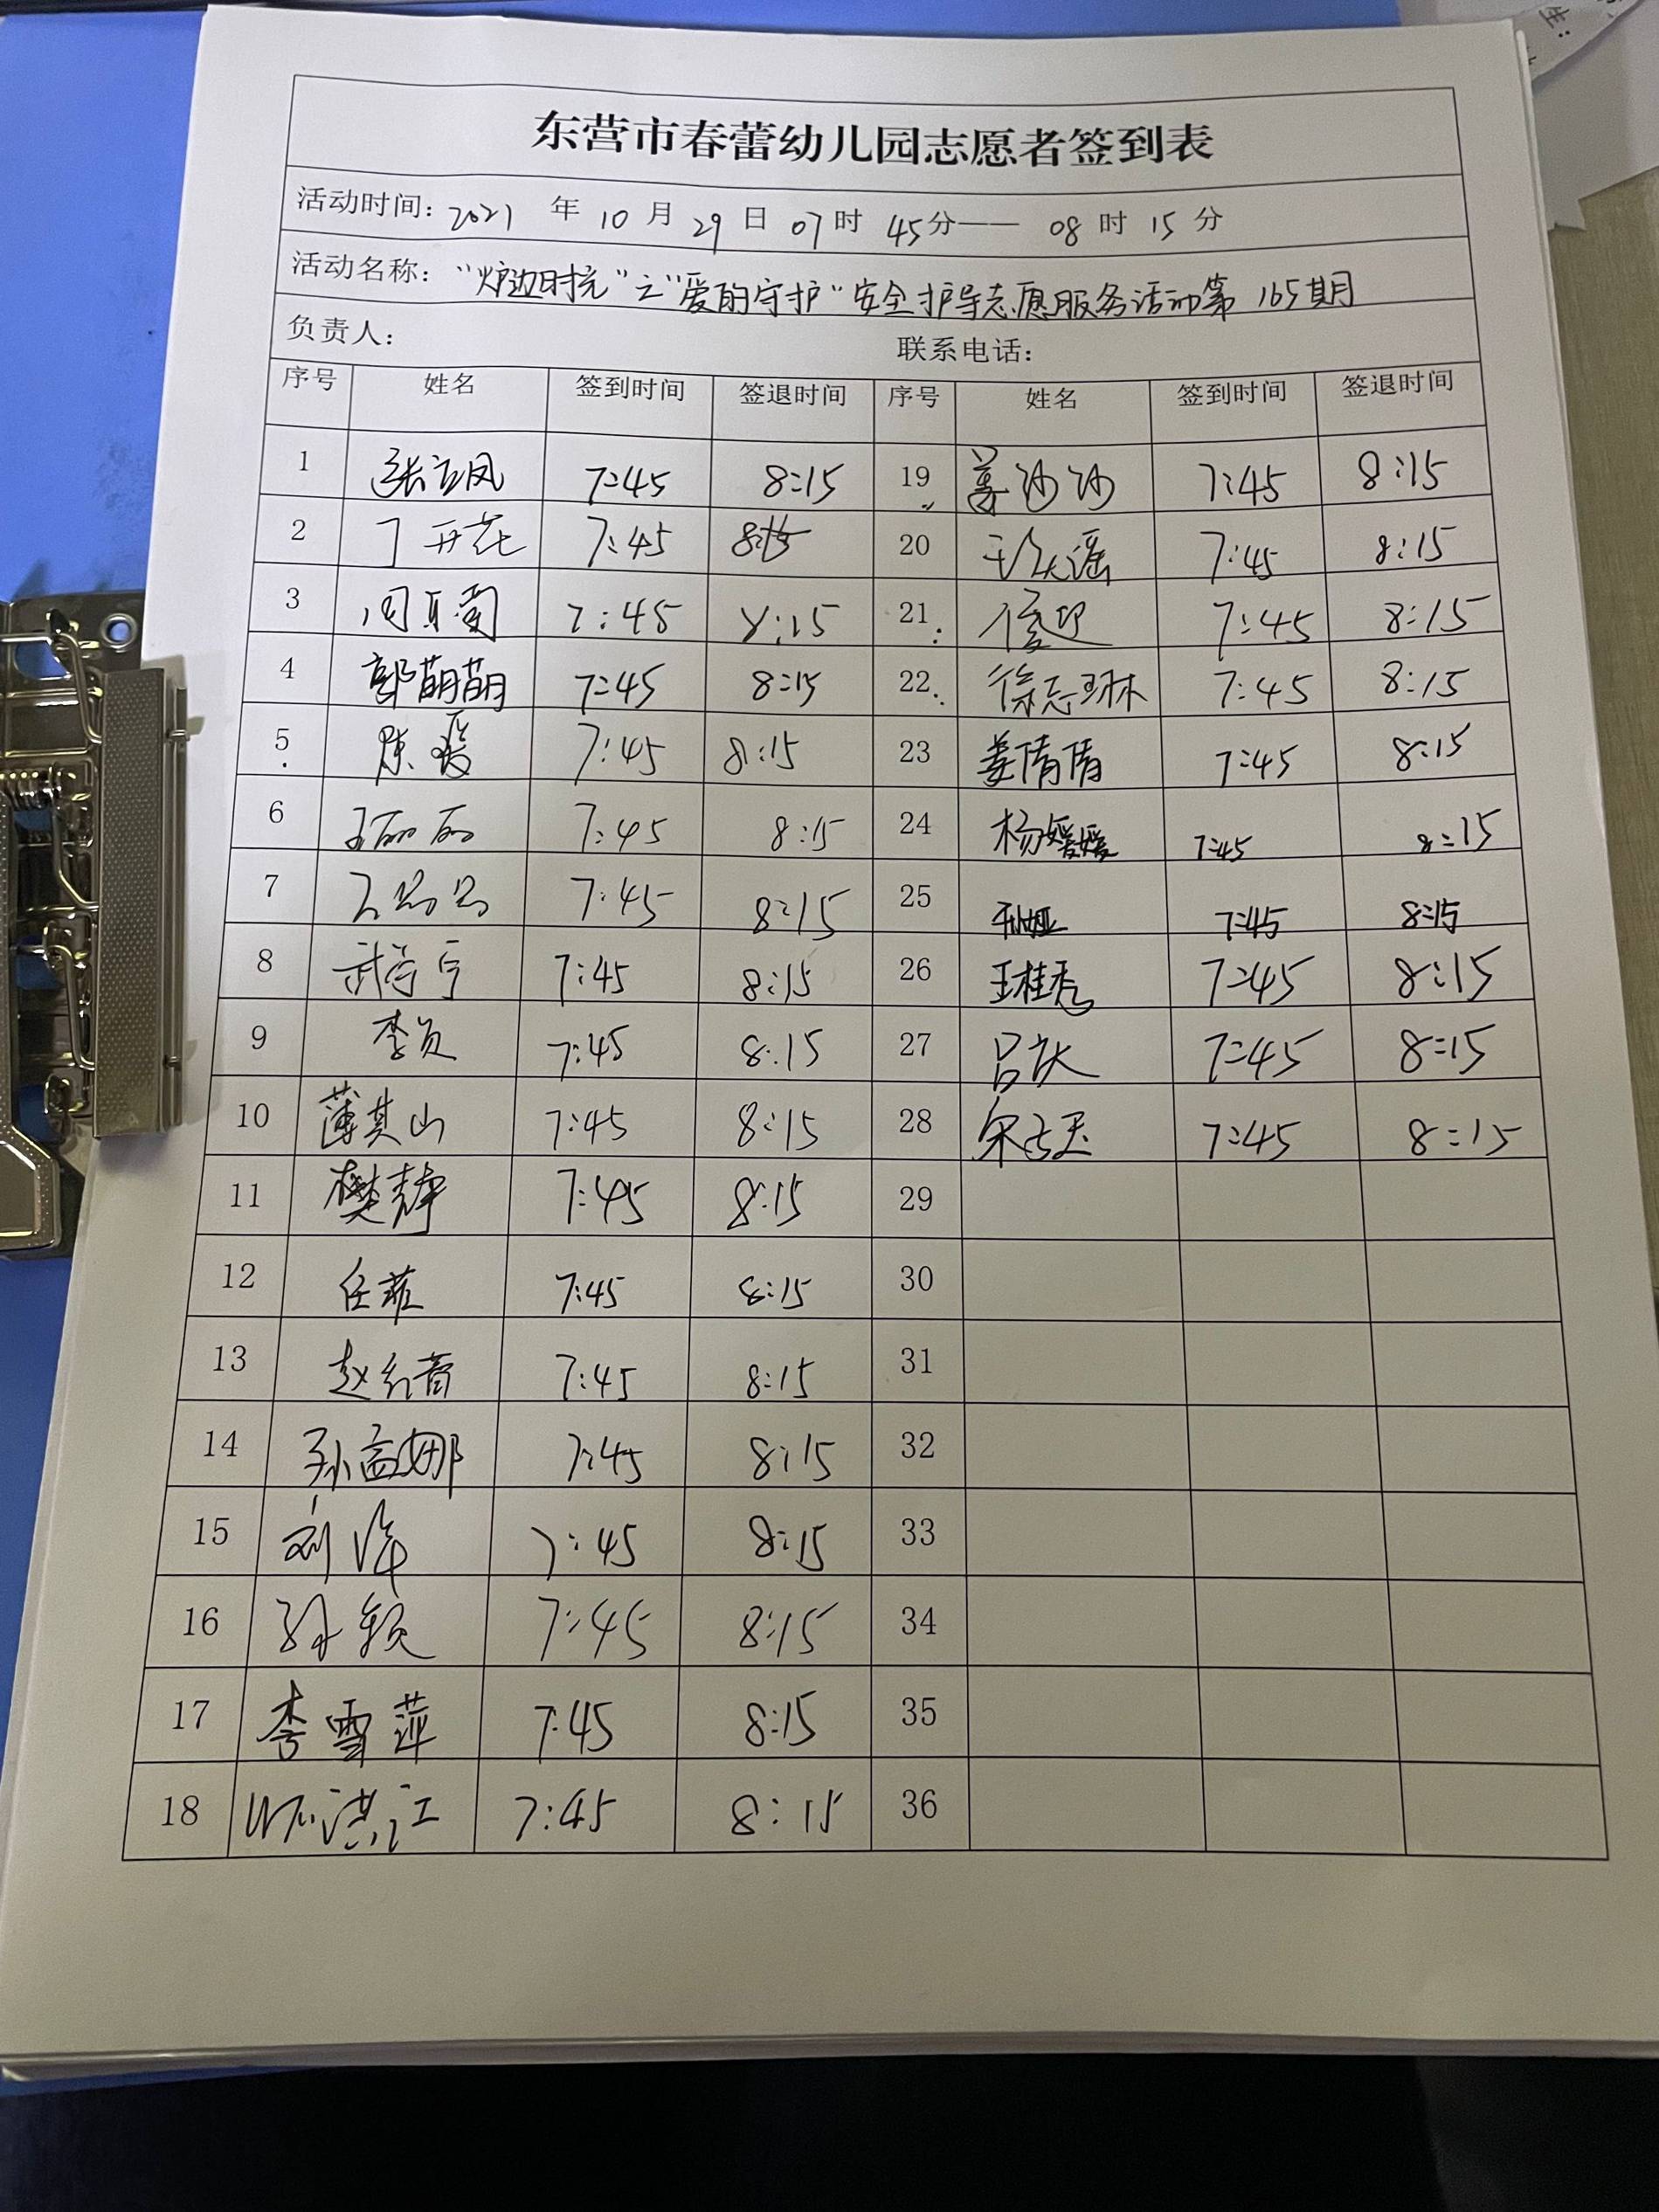 东营市春蕾幼儿园志愿者签到表
活动时间：2021 年 10 月 29 日 07 时 45 分—— 08 时 15 分
活动名称：“炉边时光”之“爱的守护”安全护导志愿服务活动第 165期
负责人： 联系电话：
序号 姓名 签到时间 签退时间 序号 姓名 签到时间 签退时间
1 张立凤 7:45 8:15 19 姜沙沙 7:45 8:15
2 丁开花 7:45 8:15 20 7:45 8:15
3 7:45 8:15 21 7:45 8:15
4 郭萌萌 7:45 8:15 22 徐志琳 7:45 8:15
5 陈爱 7:45 8:15 23 姜倩倩 7:45 8:15
6 王丽丽 7:45 8:15 24 杨媛媛 7:45 8:15
7 7:45 8:15 25 孙娅 7:45 8:15
8 7:45 8:15 26 王桂秀 7:45 8:15
9 7:45 8:15 27 7:45 8:15
10 薄其山 7:45 8:15 28 7:45 8:15
11 樊静 7:45 8:15 29
12 任菲 7:45 8:15 30
13 7:45 8:15 31
14 孙益娜 7:45 8:15 32
15 刘洋 7:45 8:15 33
16 孙颖 7:45 8:15 34
17 李雪萍 7:45 8:15 35
18 洪江 7:45 8:15 36